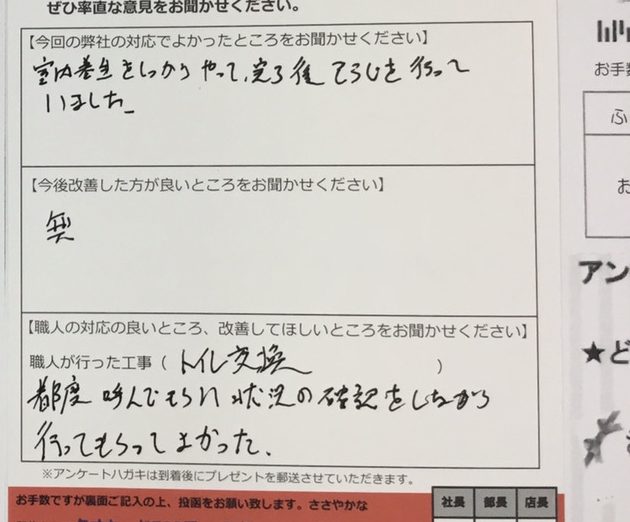 ぜひ率直な意見をお聞かせください。
【今回の弊社の対応でよかったところをお聞かせください】
室内養生をしっかりやって、完了後そうじを行って
いました
【今後改善した方が良いところをお聞かせください】
無
【職人の対応の良いところ、改善してほしいところをお聞かせください】
職人が行った工事（ トイレ交換 ）
都度呼んでもらい状況の確認をしながら
行ってもらってよかった。
※アンケートハガキは到着後にプレゼントを郵送させていただきます。
お手数ですが裏面ご記入の上、投函をお願い致します。ささやかな
社長 部長 店長
お手数
ふ
お
アン
★ど